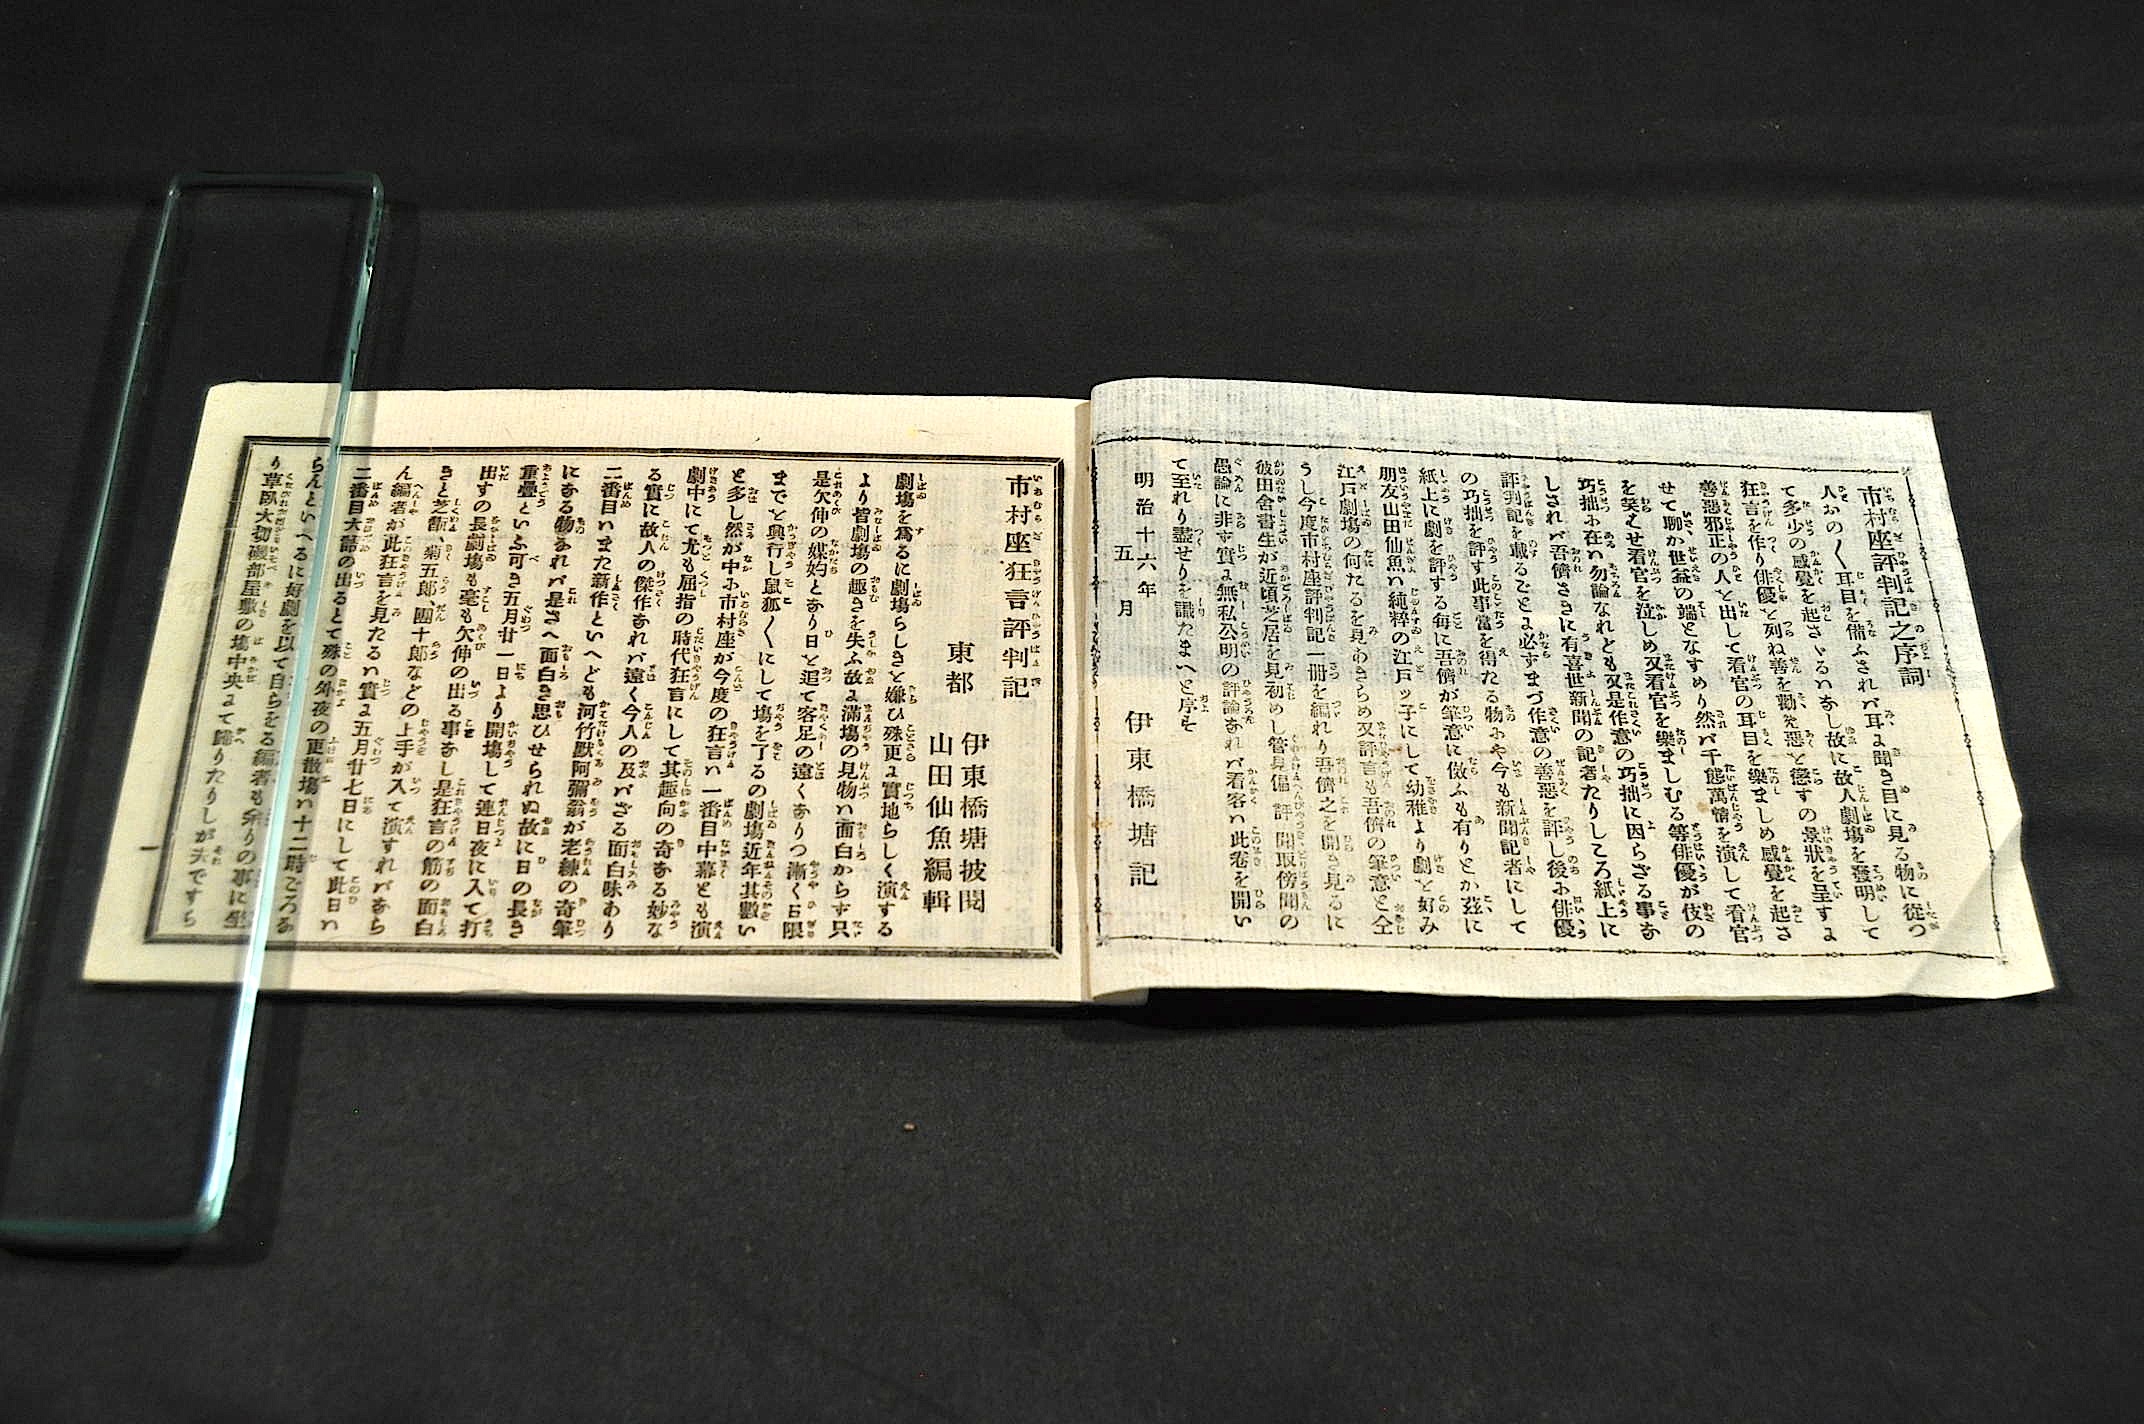 市村座評判記之序詞
人おの〱耳目を備ふされバ耳よ聞き目に見る物に從つ
て多少の感覺を起さゝるハなし故に故人劇塲を發明して
狂言を作り俳優を列ね善を勸め惡を懲すの景狀を呈すよ
善惡邪正の人を出して看官の耳目を樂ましめ感覺を起さ
せて聊か世益の端となすめり然バ千態萬情を演して看官
を笑ハせ看官を泣しめ又看官を樂ましむる等俳優が伎の
巧拙ふ在ハ勿論なれども又是作意の巧拙に因らざる事な
しされバ吾儕さきに有喜世新聞の記者たりしころ紙上に
評判記を載るごとよ必ずまづ作意の善惡を評し後ふ俳優
の巧拙を評す此事當を得たる物ふや今も新聞記者にして
紙上に劇を評する每に吾儕が筆意に倣ふも有りとか茲に
朋友山田仙魚ハ純粹の江戸ッ子にして幼稚より劇を好み
江戸劇塲の何たるを見あきらめ又評言も吾儕の筆意と仝
うし今度市村座評判記一冊を編れり吾儕之を開き見るに
彼田舍書生が近頃芝居を見初めし管見偏評聞取傍聞の
愚論に非ず實よ無私公明の評論なれバ看客ハ此卷を開い
て至れり盡せりを識たまへと序す
明治十六年
五月
伊東橋塘記
市村座狂言評判記
東都
伊東橋塘披閱
山田仙魚編輯
劇塲を爲るに劇塲らしきを嫌ひ殊更よ實地らしく演する
より皆劇塲の趣きを失ふ故よ滿塲の見物ハ面白からず只
是欠伸の媒妁とあり日を追て客足の遠くありつ漸く日限
までを興行し鼠狐〱にして塲を了るの劇塲近年其數い
と多し然が中ふ市村座が今度の狂言ハ一番目中幕とも演
劇中にて尤も屈指の時代狂言にして其趣向の奇なる妙な
る實に故人の傑作なれバ遠く今人の及バざる面白味あり
二番目ハまた新作といへども河竹默阿彌翁が老練の奇筆
にある物なれバ是さへ面白き思ひせられぬ故に日の長き
重疊といふ可き五月廿一日より開塲して連日夜に入て打
出すの長劇塲も毫も欠伸の出る事なし是狂言の筋の面白
きと芝翫、菊五郎、團十郎などの上手が入て演すれバなら
ん編者が此狂言を見たるハ實よ五月廿七日にして此日ハ
二番目大詰の出るとて殊の外夜の更散塲ハ十二時ごろな
らんといへるに好劇を以て自らをる編者も余りの事に坐
り草臥大切磯部屋敷の塲中央よて歸りたりしが夫ですら
一